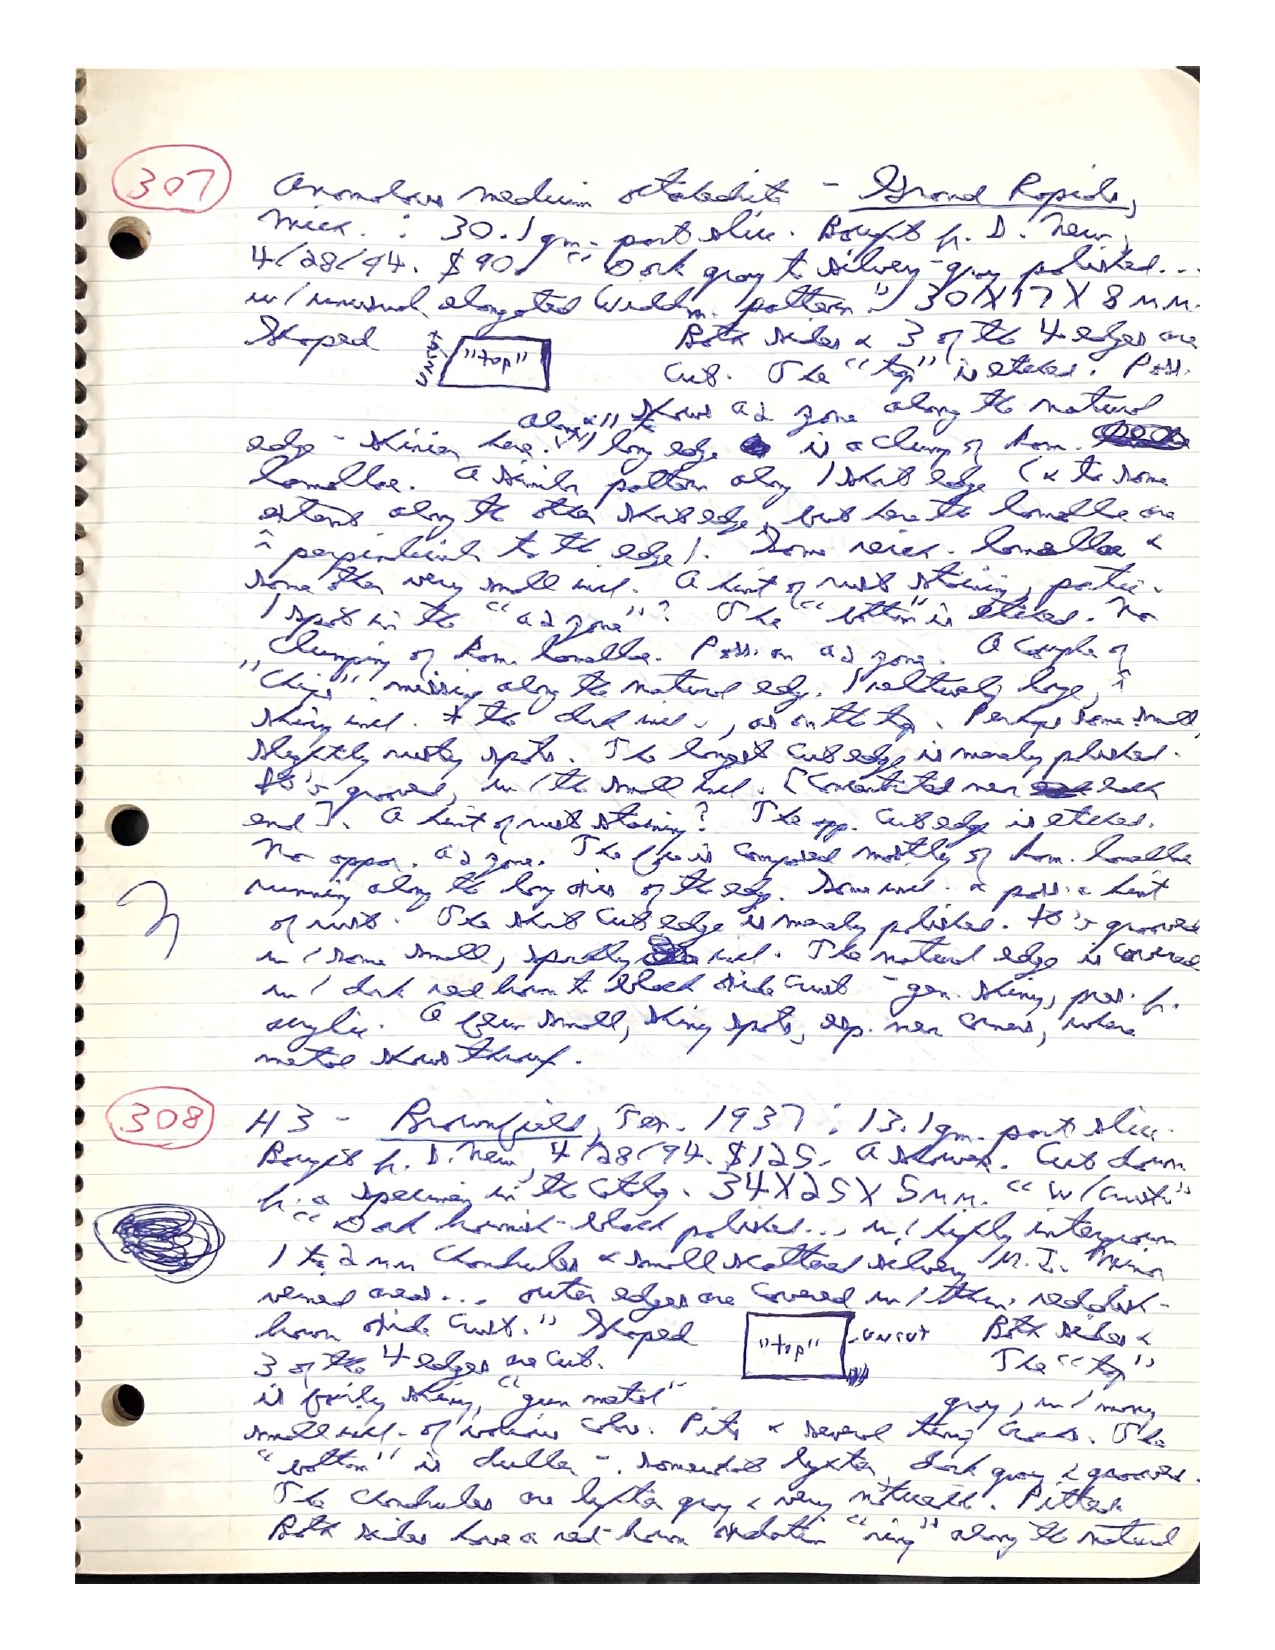 307 Anomalous medium octahedrite - Grand Rapids,
Mich. : 30.1 gm. part slice. Bought fr. D. New,
4/28/94. $90. "Dark gray to silvery-gray polished...
w/ unusual elongated Widdm. pattern." 30 X 17 X 8 mm.
Shaped "top" UNCUT Both sides & 3 of the 4 edges are
cut. The "top" is etched. Poss.
shows a2 zone along the natural
edge - shinier here. Along 1 long edge is a clump of kam.
lamellae. A similar pattern along 1 short edge (& to some
extent along the other short edge, but here the lamellae are
^ perpendicular to the edge). Some schr. lamellae &
some other very small incl. A hint of rust staining, partic.
1 spot in the "a2 zone"? The "bottom" is etched. No
clumping of kam. lamellae. Poss. an a2 zone. A couple of
"chips" missing along the natural edge. 1 relatively large,
shiny incl. & the dark incl., as on the top. Perhaps some small,
slightly rusty spots. The longest cut edge is merely polished.
It's grooved, w/ the small incl. [concentrated near each
end]. A hint of rust staining? The opp. cut edge is etched.
No appar. a2 zone. The face is composed mostly of kam. lamellae
running along the long axis of the edge. Some incl. & poss. a hint
of rust. The short cut edge is merely polished. It's grooved
w/ some small, incl. The natural edge is covered
w/ dark red brown to black oxide crust - gen. shiny, pres. fr.
acrylic. A few small, shiny spots, esp. near corners, where
metal shows through.
308 H3 - Brownfield, Tex. 1937 : 13.1 gm. part slice.
Bought fr. D. New, 4/28/94. $125. A slice. Cut down
fr. a specimen in the catlg. 34 X 25 X 5 mm. "w/ crust."
"Dark brownish-black polished... w/ highly intergrown
1 to 2 mm chondrules & small scattered silvery N.I. Minor
veined areas... outer edges are covered w/ thin, reddish-
brown oxide crust." Shaped "top" -UNCUT Both sides &
3 of the 4 edges are cut. The "top"
is fairly shiny, "gun metal" gray, w/ many
small incl. of various color. Pits & several tiny cracks. The
"bottom" is duller - somewhat lighter dark gray & grooved.
The chondrules are lighter gray & very noticeable. Pitted.
Both sides have a red-brown oxidation "ring" along the natural